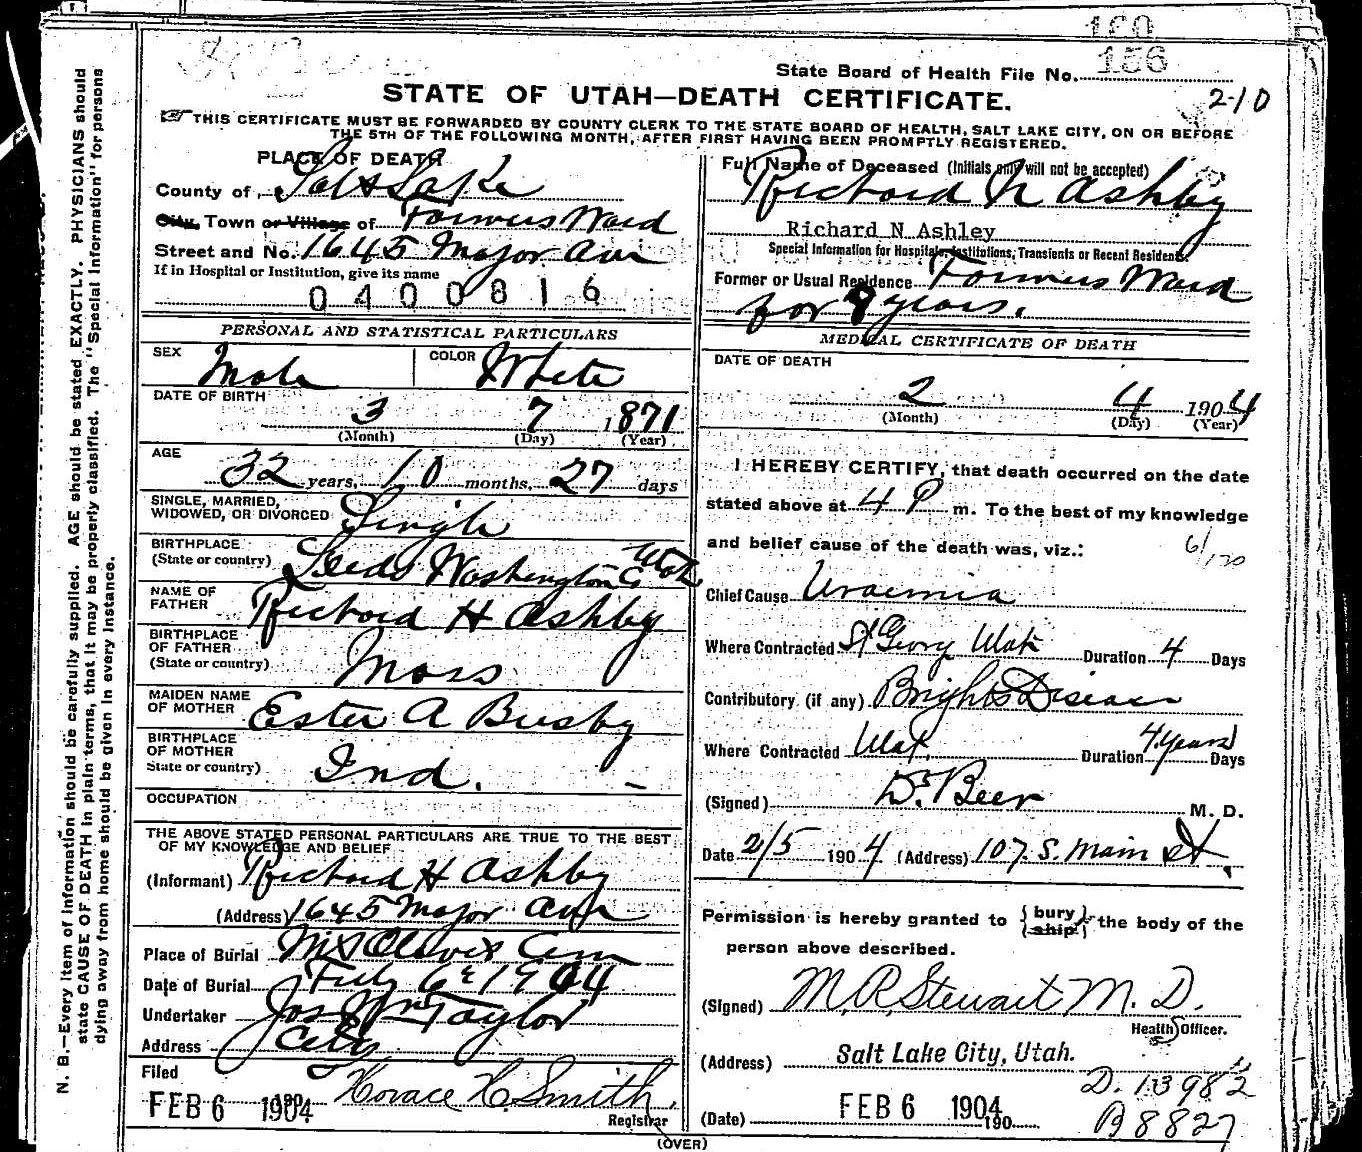 160
156
State Board of Health File No.
STATE OF UTAH—DEATH CERTIFICATE.
2-10
THIS CERTIFICATE MUST BE FORWARDED BY COUNTY CLERK TO THE STATE BOARD OF HEALTH, SALT LAKE CITY, ON OR BEFORE
THE 5TH OF THE FOLLOWING MONTH, AFTER FIRST HAVING BEEN PROMPTLY REGISTERED.
PLACE OF DEATH
County of Salt Lake
City, Town or Village of Farmers Ward
Street and No. 1645 Major Ave
If in Hospital or Institution, give its name
0400816
PERSONAL AND STATISTICAL PARTICULARS
SEX Male COLOR White
DATE OF BIRTH
3 7 1871
(Month) (Day) (Year)
AGE
32 years, 10 months, 27 days
SINGLE, MARRIED,
WIDOWED, OR DIVORCED Single
BIRTHPLACE
(State or country) Leeds Washington Co Utah
NAME OF
FATHER Richard H Ashby
BIRTHPLACE
OF FATHER
(State or country) Mass
MAIDEN NAME
OF MOTHER Ester A Busby
BIRTHPLACE
OF MOTHER
State or country) Ind. –
OCCUPATION
THE ABOVE STATED PERSONAL PARTICULARS ARE TRUE TO THE BEST
OF MY KNOWLEDGE AND BELIEF
(Informant) Richard H Ashby
(Address) 1645 Major Ave
Place of Burial Mt Olivet Cem
Date of Burial Feby 6th 1904
Undertaker Jos Wm Taylor
Address City
Filed
FEB 6 1904 Horace H. Smith,
Registrar
Full Name of Deceased (Initials only will not be accepted)
Richard N Ashby
Richard N Ashley
Special Information for Hospitals, Institutions, Transients or Recent Residents.
Former or Usual Residence Farmers Ward
for 8 years.
MEDICAL CERTIFICATE OF DEATH
DATE OF DEATH
2 4 1904
(Month) (Day) (Year)
I HEREBY CERTIFY, that death occurred on the date
stated above at 4 P m. To the best of my knowledge
and belief cause of the death was, viz.:
6/120
Chief Cause Uraemia
Where Contracted St George Utah Duration 4 Days
Contributory (if any) Brights Disease
Where Contracted Utah, Duration 4 years Days
(Signed) Dr. Beer M. D.
Date 2/5 1904 (Address) 107. S. Main St,
Permission is hereby granted to bury ship the body of the
person above described.
(Signed) M. R. Stewart M. D.
Health Officer.
(Address) Salt Lake City, Utah.
D. 13982
(Date) FEB 6 1904 190
B 8827
(OVER)
N. B.—Every item of information should be carefully supplied. AGE should be stated EXACTLY. PHYSICIANS should
state CAUSE OF DEATH in plain terms, that it may be properly classified. The "Special Information" for persons
dying away from home should be given in every instance.